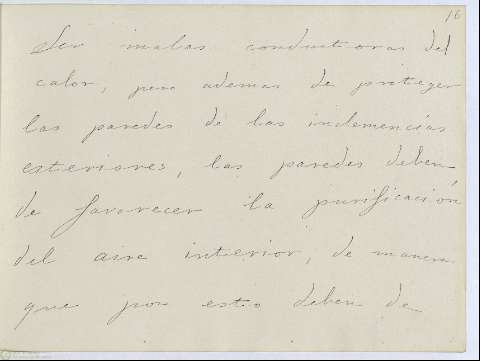 16
Ser malas conductoras del
calor, pero ademas de proteger
las paredes de las inclemencias
exteriores, las paredes deben
de favorecer la purificación
del aire interior, de manera
que por esto deben de